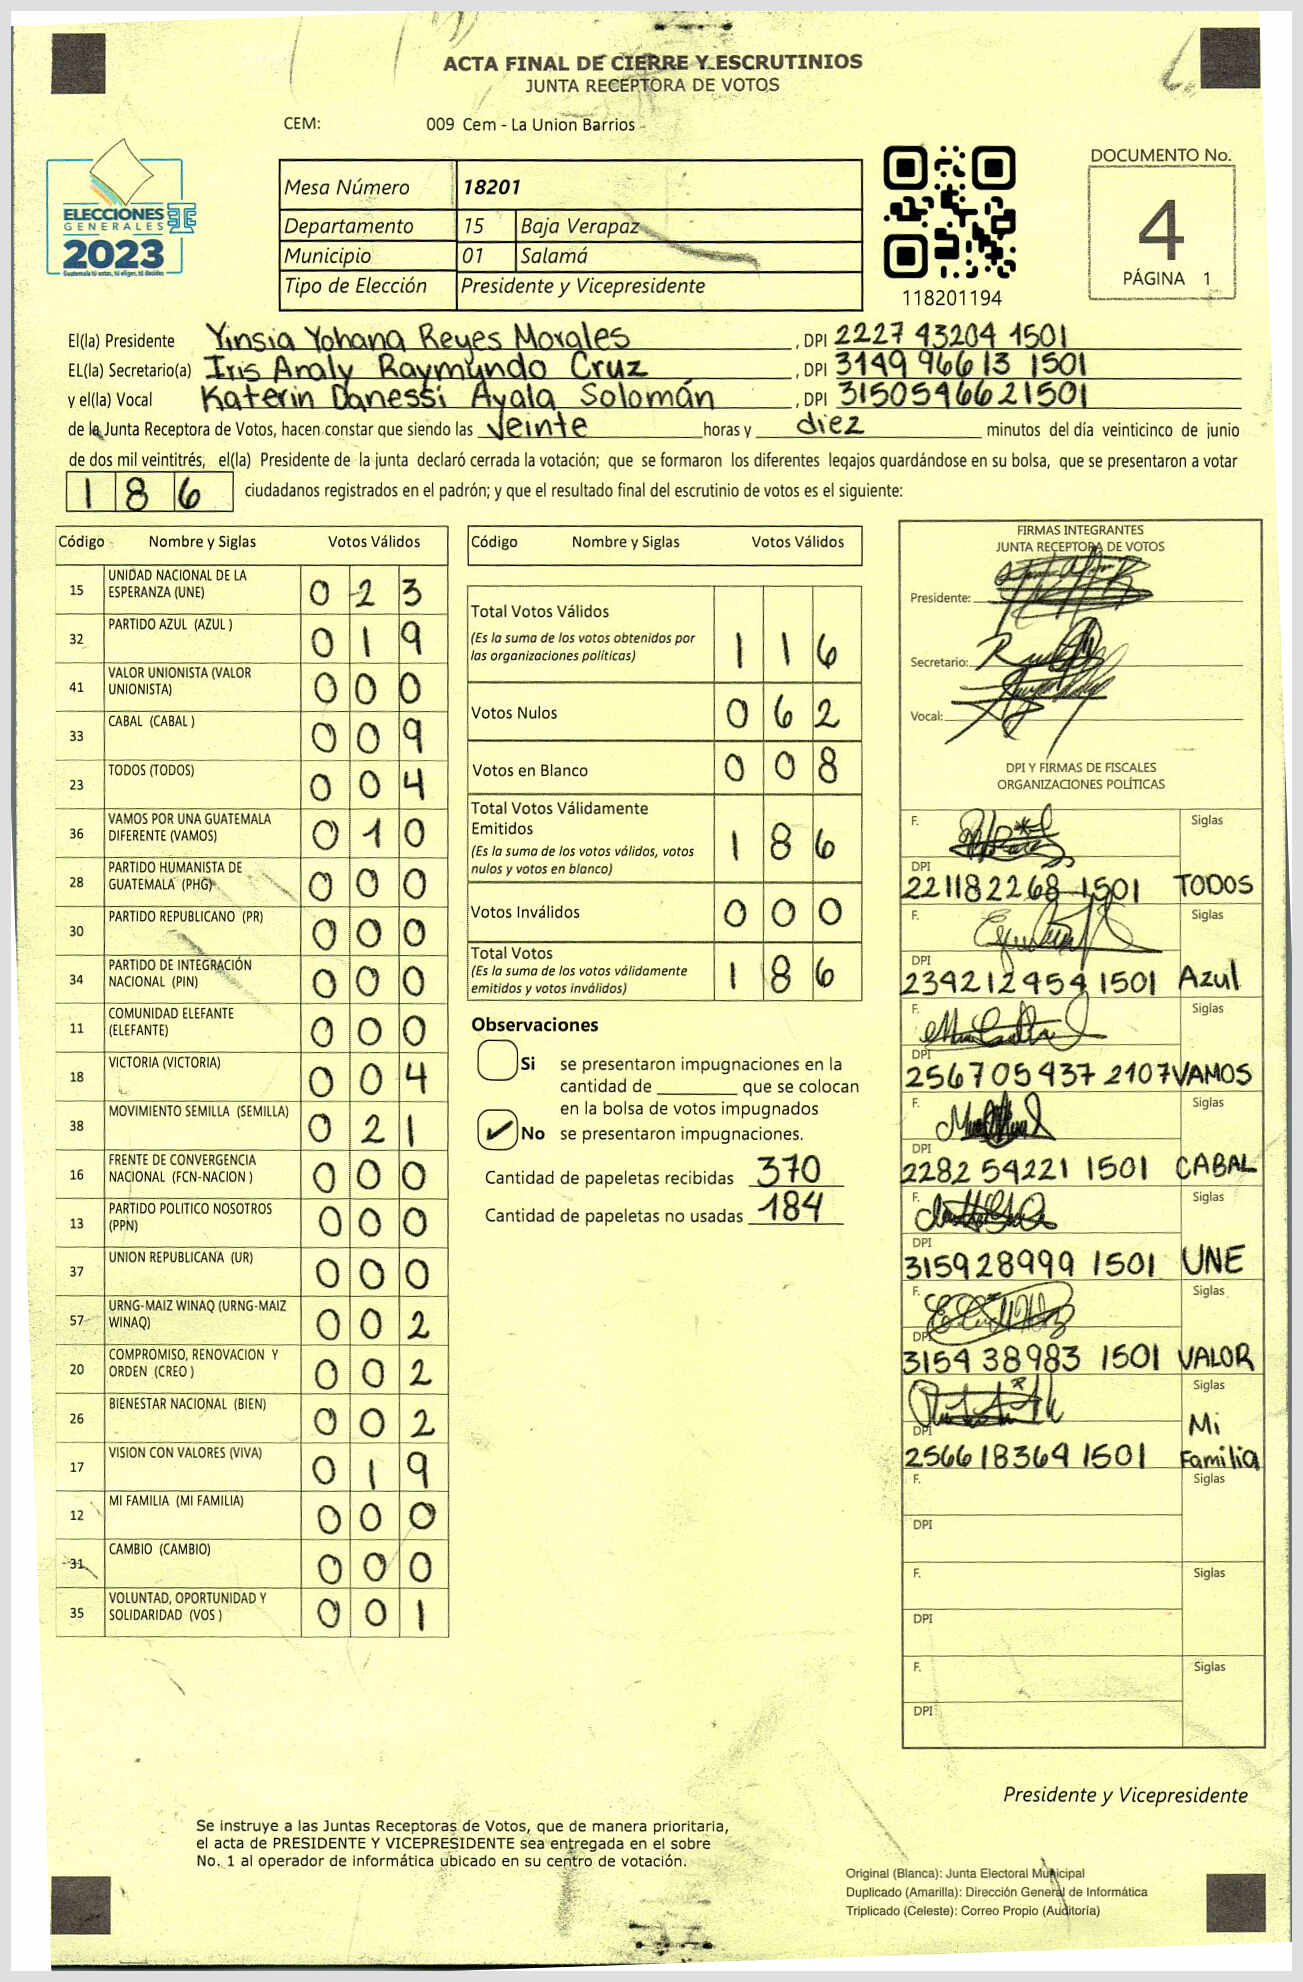 ACTA FINAL DE CIERRE Y ESCRUTINIOS
JUNTA RECEPTORA DE VOTOS
CEM: 009 Cem - La Union Barrios
ELECCIONES
GENERALES
2023
Guatemala tú votas, tú eliges, tú decides
Mesa Número 18201
Departamento 15 Baja Verapaz
Municipio 01 Salamá
Tipo de Elección Presidente y Vicepresidente
118201194
DOCUMENTO No.
4
PÁGINA 1
El(la) Presidente Yinsia Yohana Reyes Morales , DPI 2227 43204 1501
EL(la) Secretario(a) Iris Analy Raymundo Cruz , DPI 3149 96613 1501
y el(la) Vocal Katerin Danessi Ayala Solomán , DPI 3150546621501
de la Junta Receptora de Votos, hacen constar que siendo las veinte horas y diez minutos del día veinticinco de junio
de dos mil veintitrés, el(la) Presidente de la junta declaró cerrada la votación; que se formaron los diferentes legajos guardándose en su bolsa, que se presentaron a votar
186 ciudadanos registrados en el padrón; y que el resultado final del escrutinio de votos es el siguiente:
Código Nombre y Siglas Votos Válidos
15 UNIDAD NACIONAL DE LA ESPERANZA (UNE) 0 2 3
32 PARTIDO AZUL (AZUL ) 0 1 9
41 VALOR UNIONISTA (VALOR UNIONISTA) 0 0 0
33 CABAL (CABAL ) 0 0 9
23 TODOS (TODOS) 0 0 4
36 VAMOS POR UNA GUATEMALA DIFERENTE (VAMOS) 0 1 0
28 PARTIDO HUMANISTA DE GUATEMALA (PHG) 0 0 0
30 PARTIDO REPUBLICANO (PR) 0 0 0
34 PARTIDO DE INTEGRACIÓN NACIONAL (PIN) 0 0 0
11 COMUNIDAD ELEFANTE (ELEFANTE) 0 0 0
18 VICTORIA (VICTORIA) 0 0 4
38 MOVIMIENTO SEMILLA (SEMILLA) 0 2 1
16 FRENTE DE CONVERGENCIA NACIONAL (FCN-NACION ) 0 0 0
13 PARTIDO POLITICO NOSOTROS (PPN) 0 0 0
37 UNION REPUBLICANA (UR) 0 0 0
57 URNG-MAIZ WINAQ (URNG-MAIZ WINAQ) 0 0 2
20 COMPROMISO, RENOVACION Y ORDEN (CREO ) 0 0 2
26 BIENESTAR NACIONAL (BIEN) 0 0 2
17 VISION CON VALORES (VIVA) 0 1 9
12 MI FAMILIA (MI FAMILIA) 0 0 0
31 CAMBIO (CAMBIO) 0 0 0
35 VOLUNTAD, OPORTUNIDAD Y SOLIDARIDAD (VOS ) 0 0 1
Código Nombre y Siglas Votos Válidos
Total Votos Válidos 1 1 6
(Es la suma de los votos obtenidos por
las organizaciones políticas)
Votos Nulos 0 6 2
Votos en Blanco 0 0 8
Total Votos Válidamente
Emitidos 1 8 6
(Es la suma de los votos válidos, votos
nulos y votos en blanco)
Votos Inválidos 0 0 0
Total Votos 1 8 6
(Es la suma de los votos válidamente
emitidos y votos inválidos)
Observaciones
Si se presentaron impugnaciones en la
cantidad de ________ que se colocan
en la bolsa de votos impugnados
No se presentaron impugnaciones.
Cantidad de papeletas recibidas 370
Cantidad de papeletas no usadas 184
FIRMAS INTEGRANTES
JUNTA RECEPTORA DE VOTOS
Presidente:
Secretario:
Vocal:
DPI Y FIRMAS DE FISCALES
ORGANIZACIONES POLÍTICAS
F. Siglas
DPI
221182268 1501 TODOS
F. Siglas
DPI
234212454 1501 Azul
F. Siglas
DPI
256705437 2107 VAMOS
F. Siglas
DPI
2282 54221 1501 CABAL
F. Siglas
DPI
315928999 1501 UNE
F. Siglas
DPI
3154 38983 1501 VALOR
Siglas
DPI Mi
256618369 1501 Familia
F. Siglas
DPI
F. Siglas
DPI
F. Siglas
DPI
Presidente y Vicepresidente
Se instruye a las Juntas Receptoras de Votos, que de manera prioritaria,
el acta de PRESIDENTE Y VICEPRESIDENTE sea entregada en el sobre
No. 1 al operador de informática ubicado en su centro de votación.
Original (Blanca): Junta Electoral Municipal
Duplicado (Amarilla): Dirección General de Informática
Triplicado (Celeste): Correo Propio (Auditoría)